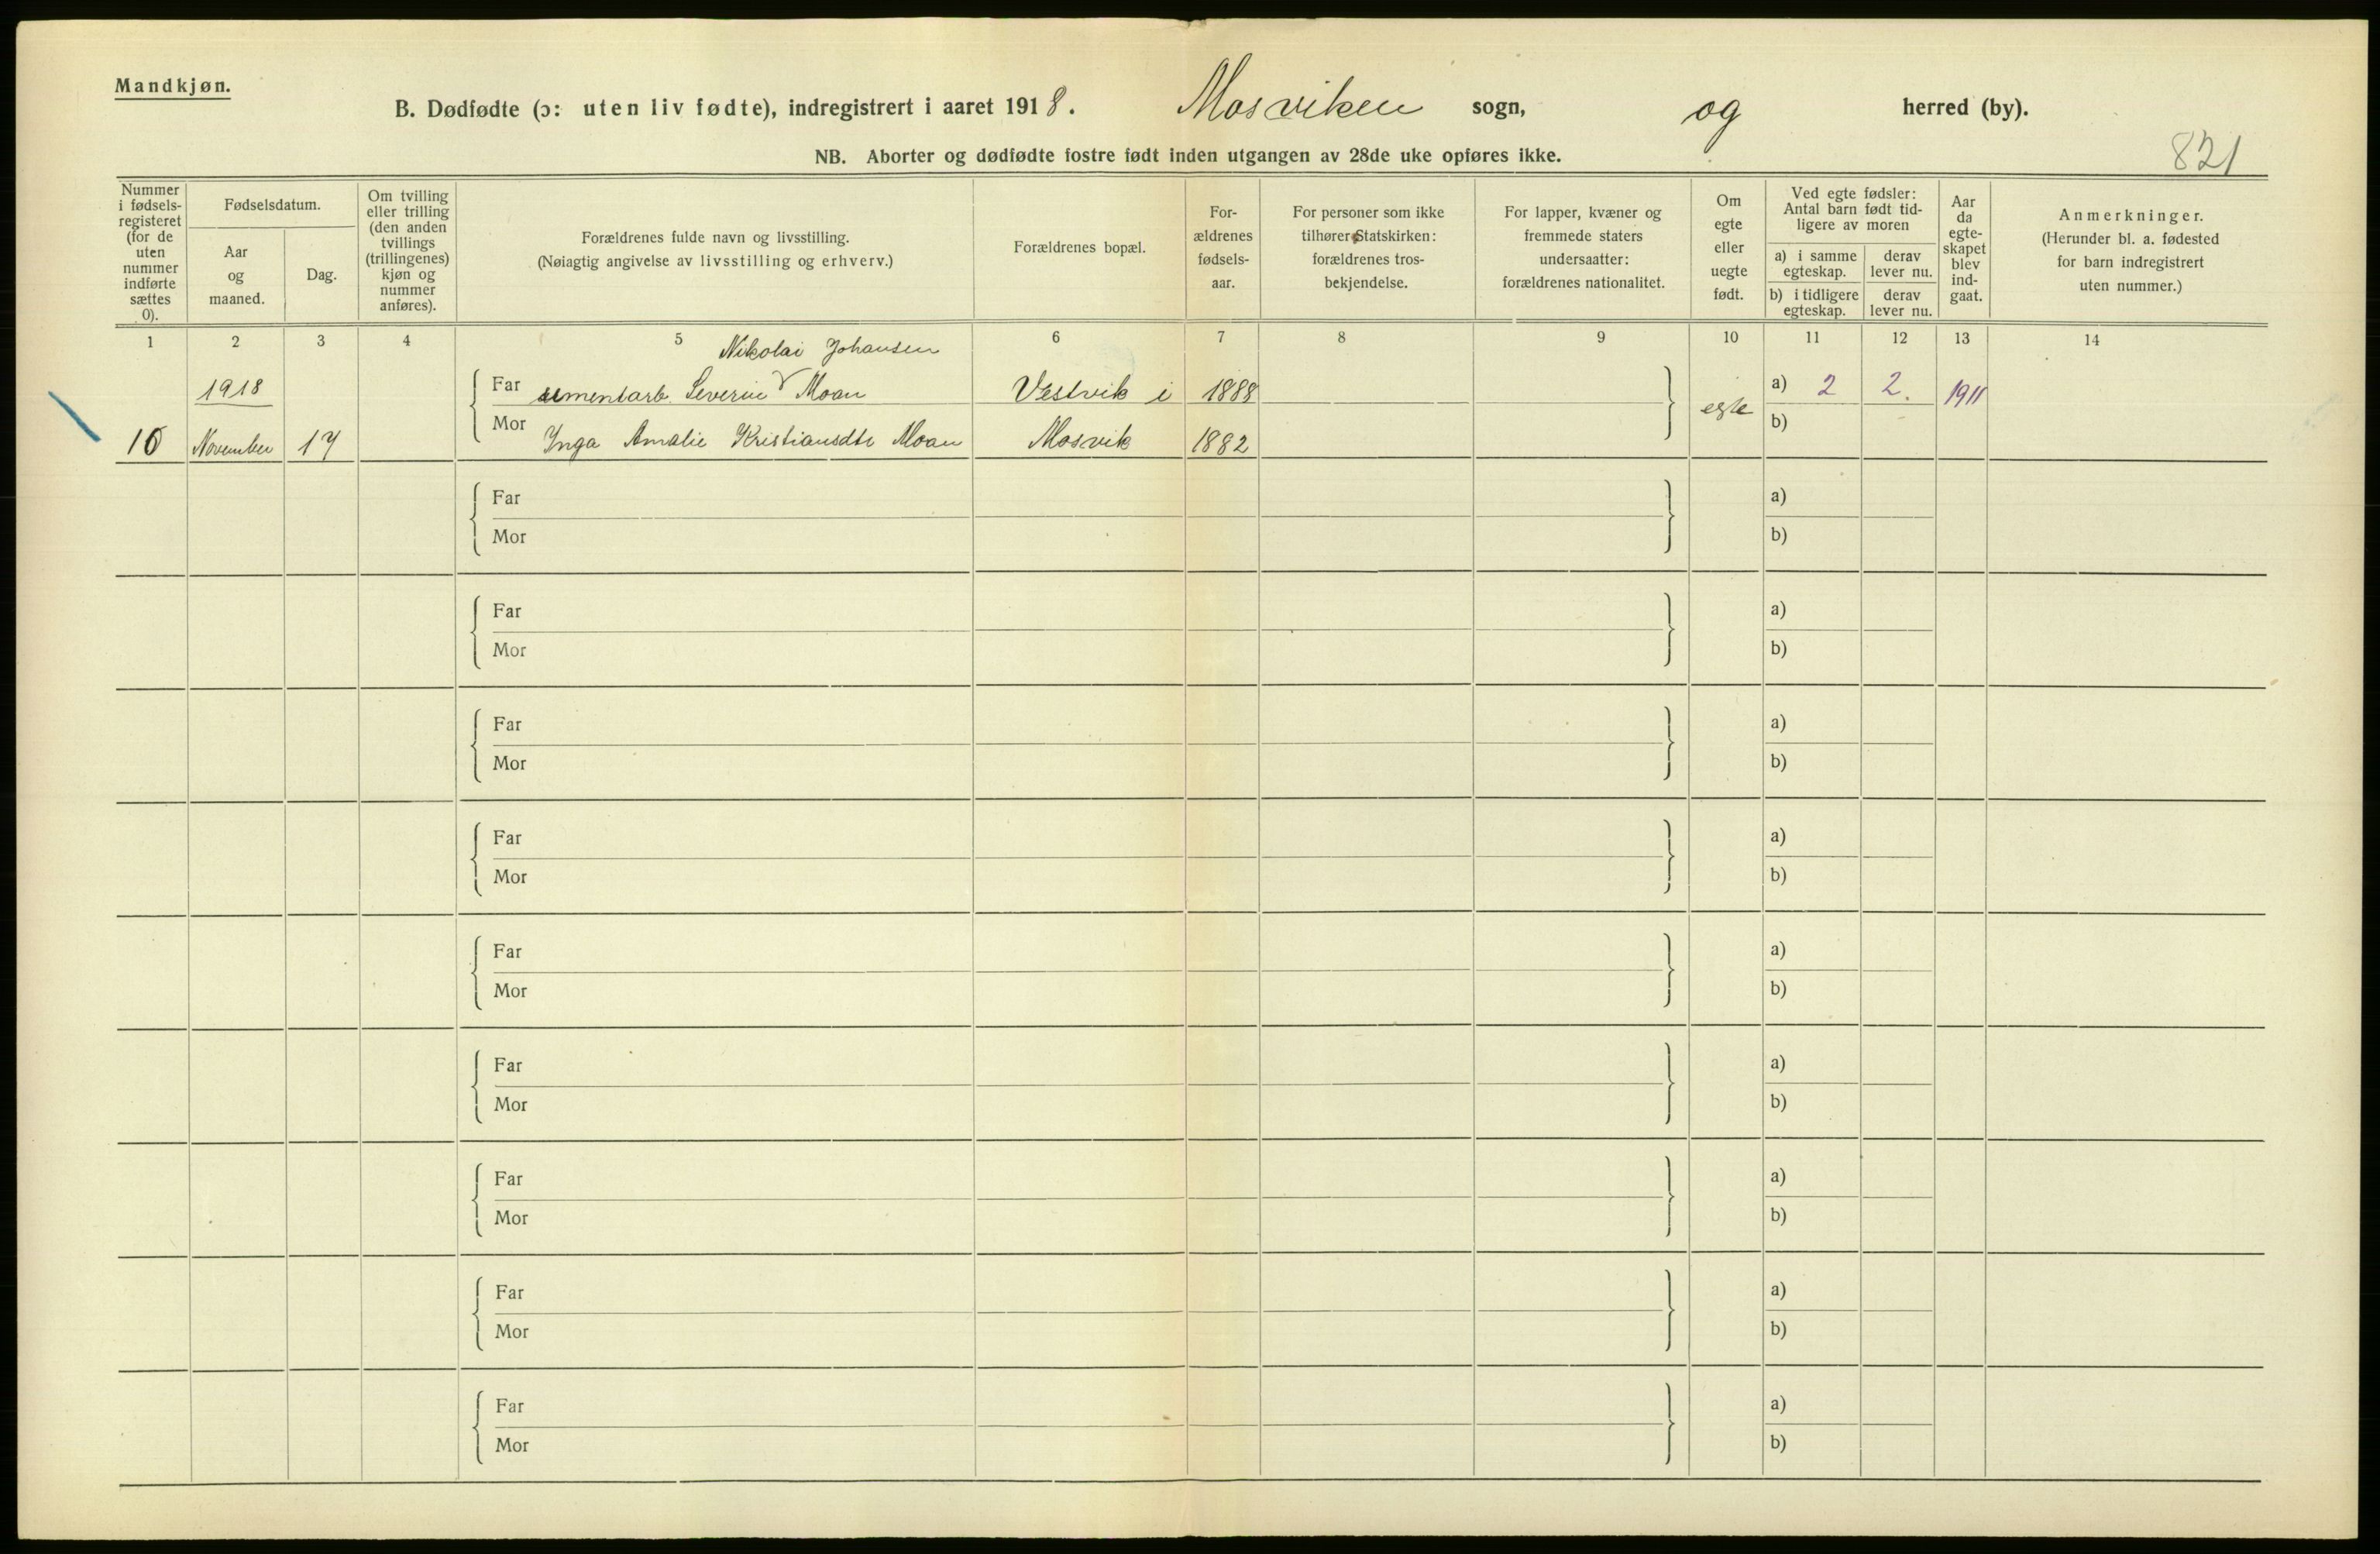 Mandkjøn.
B. Dødfødte (ɔ: uten liv fødte), indregistrert i aaret 1918. Mosviken sogn, og herred (by).
NB. Aborter og dødfødte fostre født inden utgangen av 28de uke opføres ikke.
821
Nummer i fødsels-registeret (for de uten nummer indførte sættes 0).
Fødselsdatum.
Aar og maaned.
Dag.
Om tvilling eller trilling (den anden tvillings (trillingenes) kjøn og nummer anføres).
Forældrenes fulde navn og livsstilling.
(Nøiagtig angivelse av livsstilling og erhverv.)
Forældrenes bopæl.
For-ældrenes fødsels-aar.
For personer som ikke tilhører Statskirken: forældrenes tros-bekjendelse.
For lapper, kvæner og fremmede staters undersaatter: forældrenes nationalitet.
Om egte eller uegte født.
Ved egte fødsler: Antal barn født tid-ligere av moren
a) i samme egteskap.
derav lever nu.
b) i tidligere egteskap.
derav lever nu.
Aar da egte-skapet blev ind-gaat.
Anmerkninger.
(Herunder bl. a. fødested for barn indregistrert uten nummer.)
1 2 3 4 5 6 7 8 9 10 11 12 13 14
Nikolai Johansen
1918 Far Severin Moan Vestvik i 1888 egte a) 2 2. 1911
10 November 17 Mor Inga Amalie Kristiansdtr Moan Mosvik 1882 b)
Far a)
Mor b)
Far a)
Mor b)
Far a)
Mor b)
Far a)
Mor b)
Far a)
Mor b)
Far a)
Mor b)
Far a)
Mor b)
Far a)
Mor b)
Far a)
Mor b)